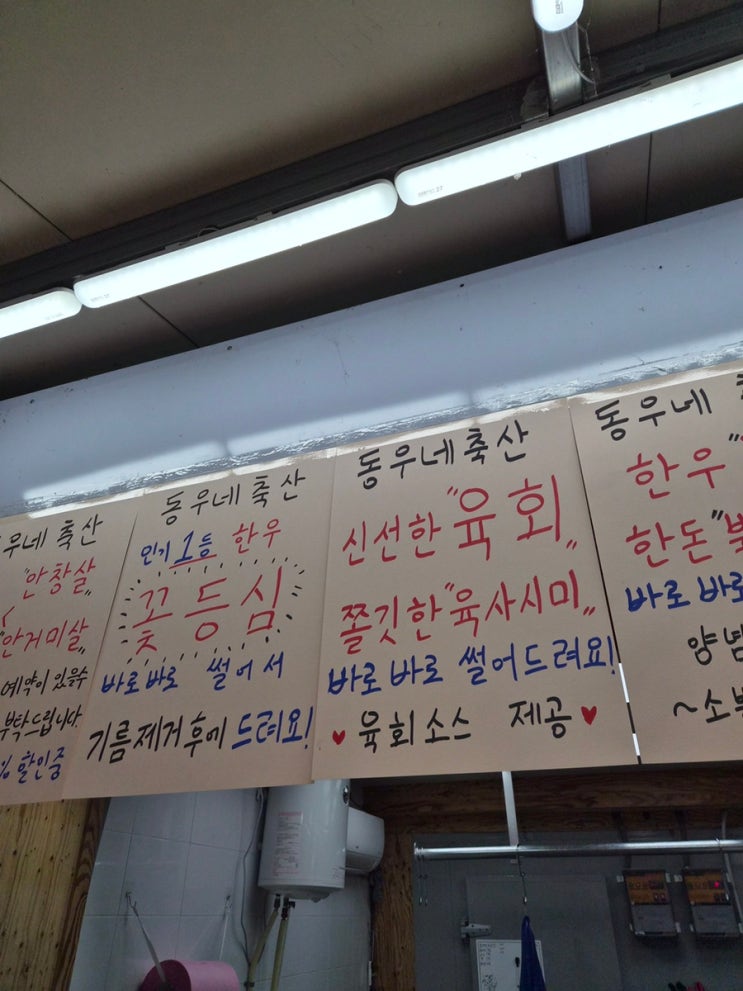 우네 축산
"안창살"
"안거미살"
예약이 있을수
부탁드립니다.
% 할인중
동우네 축산
인기 1등 한우
꽃등심
바로바로 썰어서
기름제거 후에 드려요!
동우네 축산
신선한 "육회"
쫄깃한 "육사시미"
바로바로 썰어드려요!
♥ 육회소스 제공 ♥
동우네
한우"
한돈"
바로바로
양념
~소부